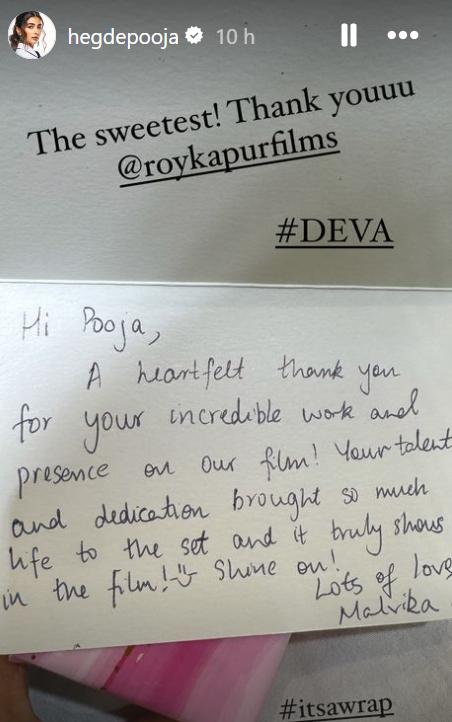 hegdepooja 10 h
The sweetest! Thank youuu
@roykapurfilms
#DEVA
Hi Pooja,
A heartfelt thank you
for your incredible work and
presence on our film! Your talent
and dedication brought so much
life to the set and it truly shows
in the film! Shine on!
Lots of love
Malvika
#itsawrap